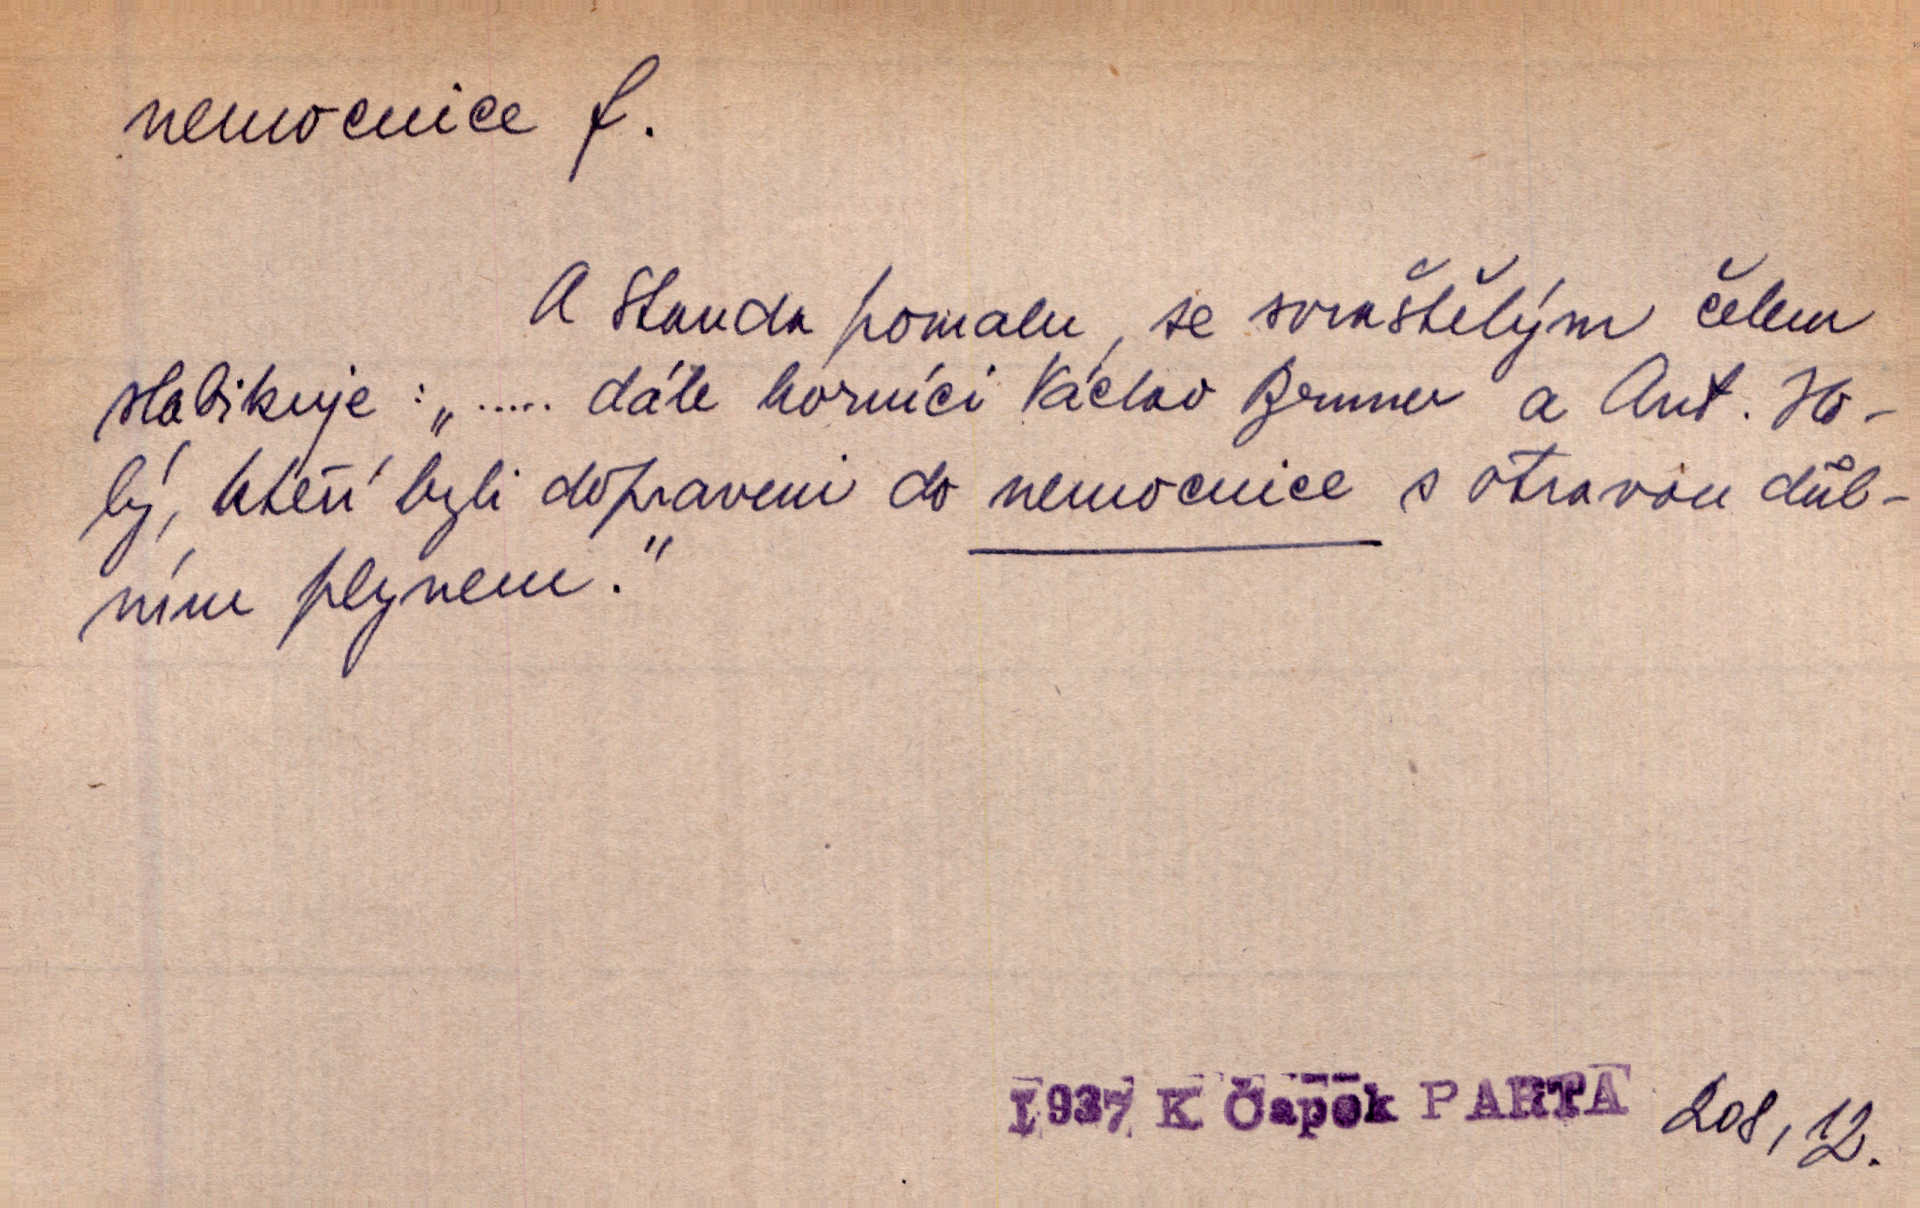 nemocnice f.
A Standa pomalu, se svraštělým čelem
slabikuje: „..... dále horníci Václav Brunner a Ant. Ho-
lý, kteří byli dopraveni do nemocnice s otravou důl-
ním plynem."
1937 K Čapek PARTA 208, 12.